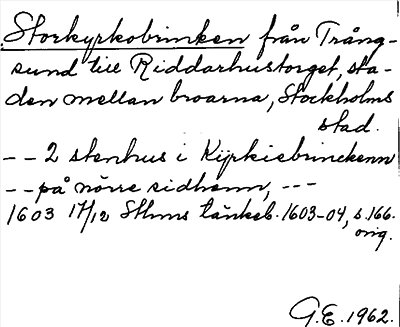 Storkyrkobrinken från Trång-
sund till Riddarhustorget, sta-
den mellan broarna, Stockholms
stad.
-- 2 stenhus i Kyrkiebrinckenn
-- på nörre sidhenn, ---
1603 17/12 Sthms tänkeb. 1603-04, s. 166.
orig.
G.E. 1962.